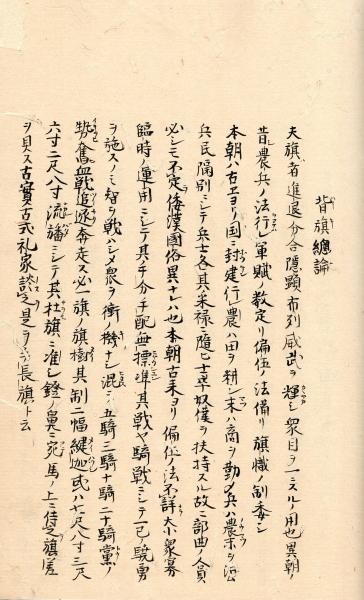 背旗總論
夫旗者進退分合隱顯布列威武ヲ輝シ衆目ヲ一ニスルノ用也異朝ノ
昔農兵ノ法行レ軍賦ノ教定リ偏伍ノ法備リ旗幟ノ制委シ
本朝ハ古ヱヨリ国ニ封建行レ農ハ田ヲ耕シ末ハ商ヲ勤メ兵ハ農末ヲ
兵民隔別ニシテ兵士各其采禄ニ應シ士卒奴僕ヲ扶持スル故ニ部曲ノ人員
必シモ不定倭漢國俗異ナレハ也本朝古来ヨリ偏伍ノ法不詳大小衆寡
臨時ノ運用ニシテ其ノ手分手配毎標準其戦ヤ騎戦ニシテ一已ノ驍勇
ヲ施スノミ智ヲ戦ハシメ衆ヲ衝ノ機ナシ混シ五騎三騎十騎二十騎黨ノ
勢奮血戦追逐奔走ス必一旗ノ旗樹其制二幅縺加或ハ七尺八寸三尺
六寸二尺八寸流旛ニシテ其杜旗ニ准シ鐙ノ鼻ニ宛馬ノ上ニ侍之旗差
ヲ具ス古實古式礼家談之是ヲ長旗ト云